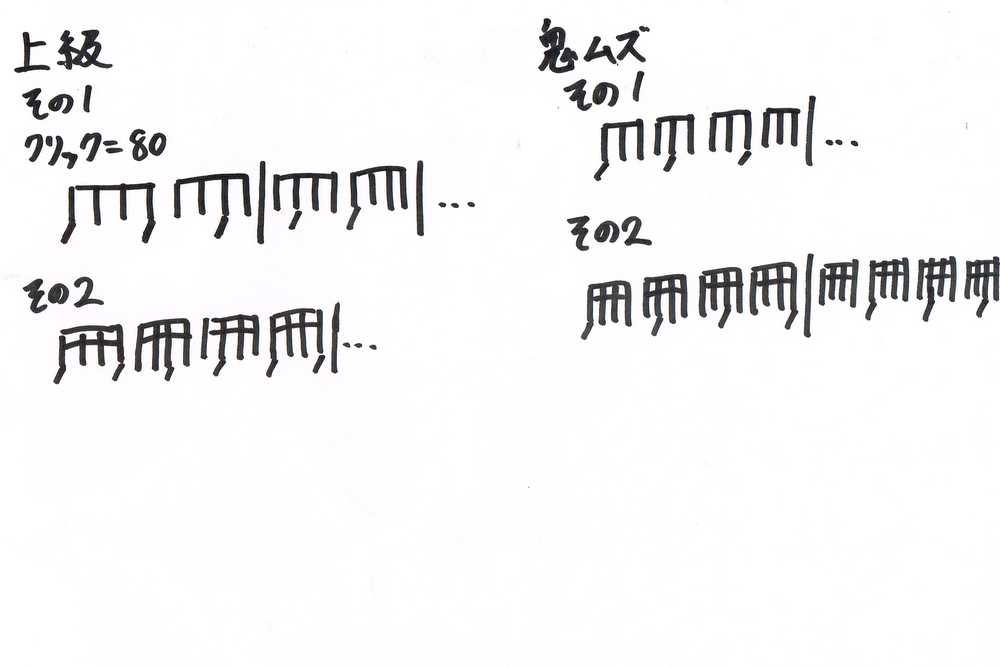 上級
その1
クリック=80
その2
鬼ムズ
その1
その2